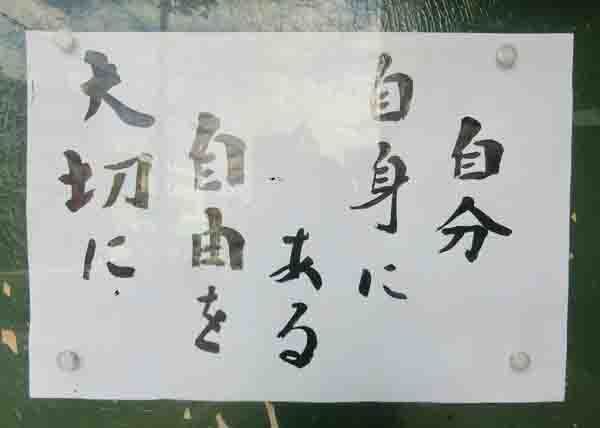 自分
自身に
ある
自由を
大切に